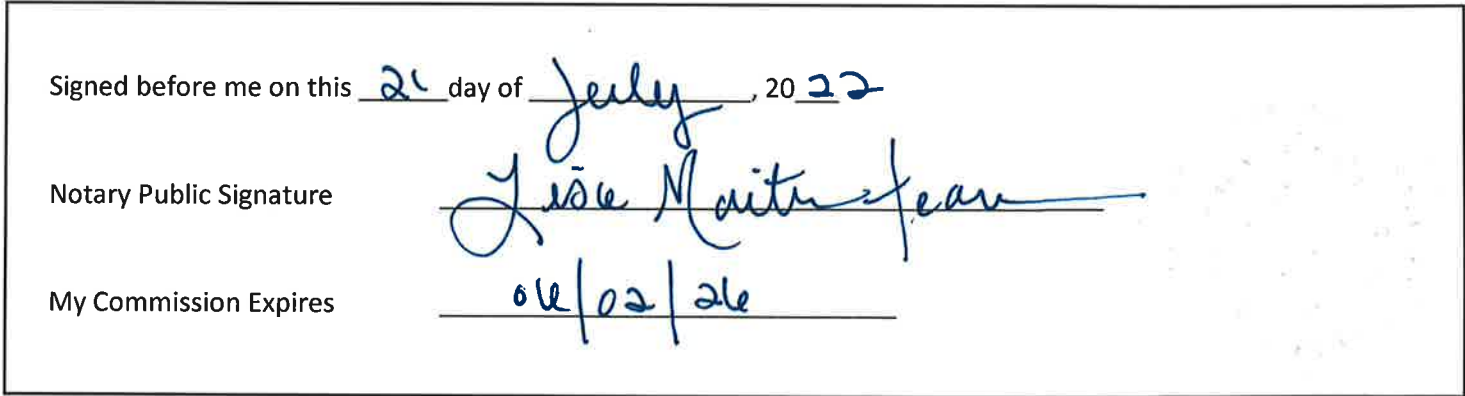 Signed before me on this 21 day of July, 2022
Notary Public Signature
My Commission Expires 06/02/26